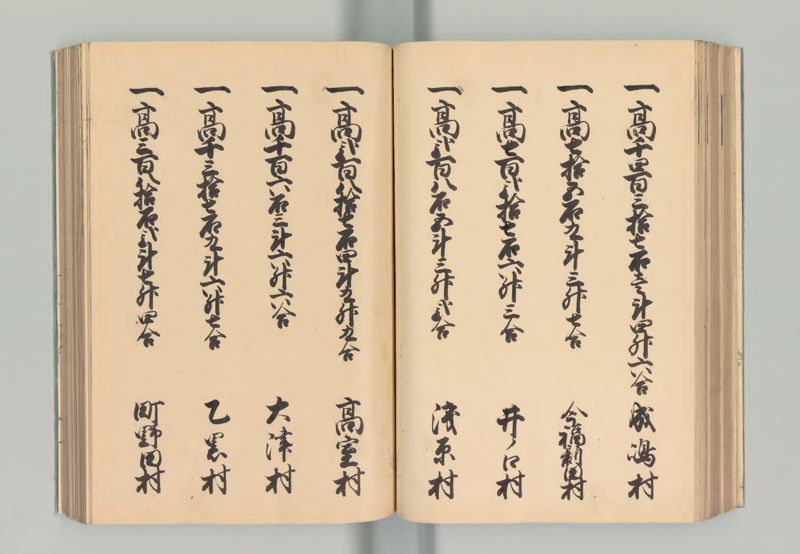 一高千四百三拾七石壱斗四升六合 成嶋村
一高七拾五石九斗三升七合 今福新田村
一高七百弐拾七石六升三合 井ノ口村
一高弐百八石五斗三升弐合 浅原村
一高弐百八拾七石四斗五升五合 高室村
一高千百六石三斗六升六合 大津村
一高千三拾七石九斗六升七合 乙黒村
一高三百八拾石弐斗七升四合 町野田村